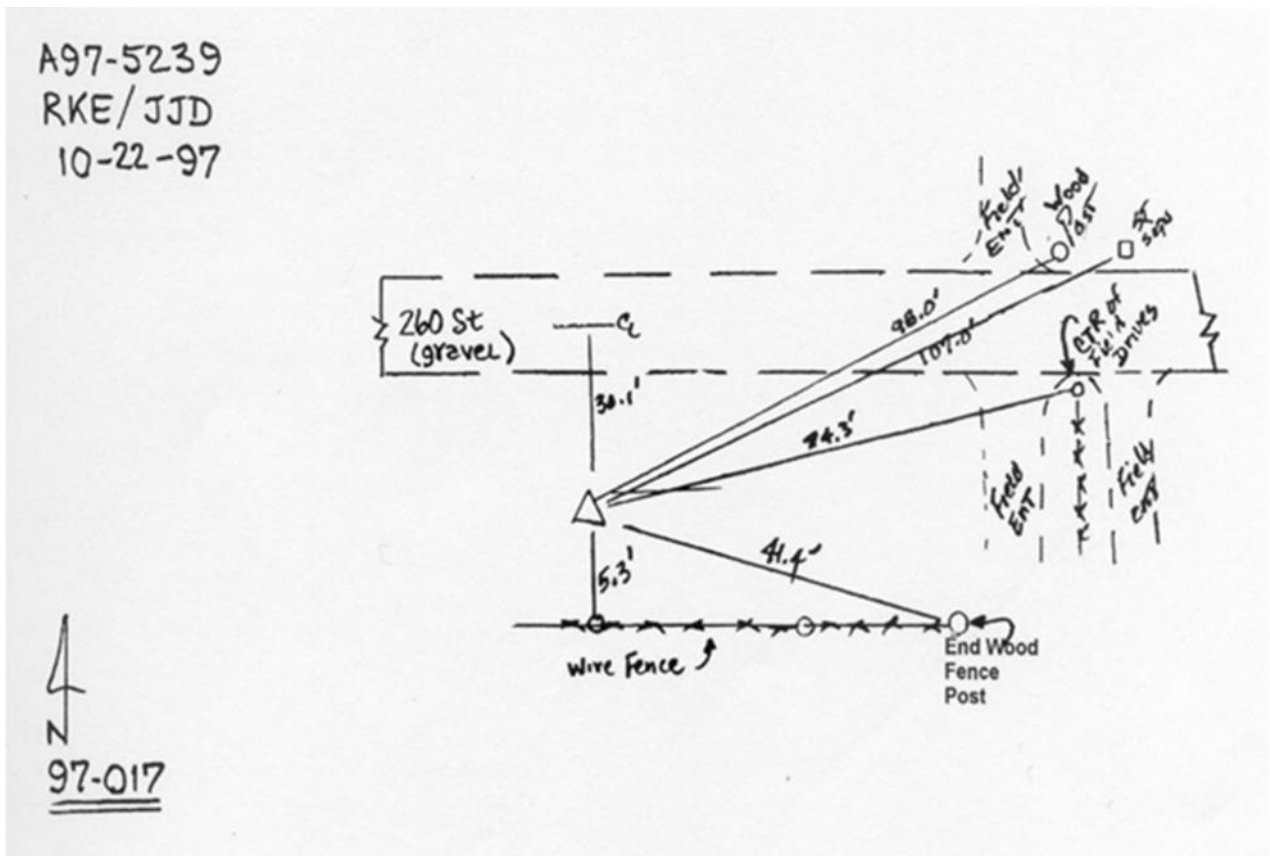 A97-5239
RKE/JJD
10-22-97
Field
Ent
Wood
Post
260 St
(gravel)
CL
98.0'
107.0'
CTR of
Field
Drives
30.1'
Field
Ent
Field
Ent
41.4'
5.3'
Wire Fence
End Wood
Fence
Post
N
97-017